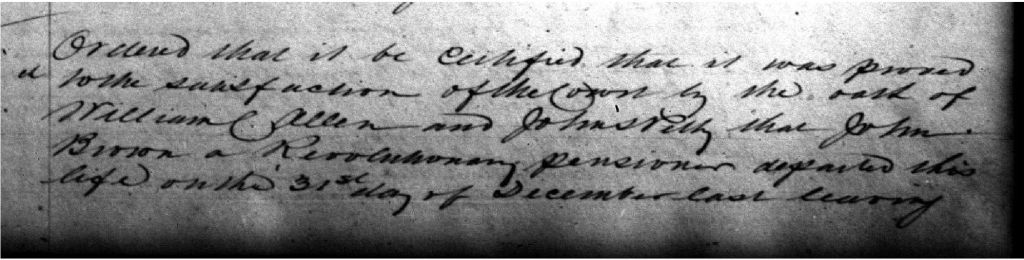 Ordered that it be Certified that it was proved
to the satisfaction of the Court by the oath of
William C. Allen and John that John
Brown a Revolutionary pensioner departed this
life on the 31st day of December last leaving